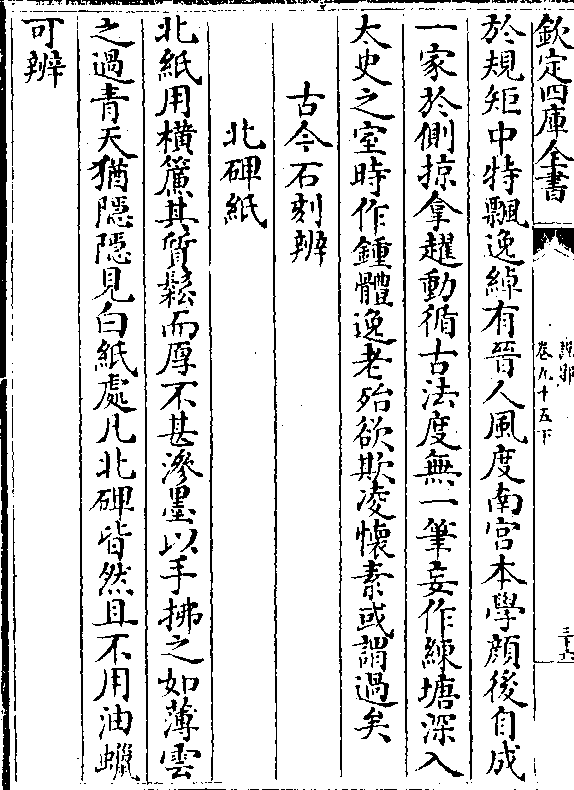 欽定四庫全書
說郛
卷九十五下
三十六
於規矩中特飄逸綽有晉人風度南宮本學顔後自成
一家於側掠拿趯動循古法度無一筆妄作練塘深入
太史之室時作鍾體逸老殆欲欺凌懐素或謂過矣
古今石刻辨
北碑紙
北紙用横簾其質鬆而厚不甚滲墨以手拂之如薄雲
之過青天猶隠隠見白紙處凡北碑皆然且不用油蠟
可辨